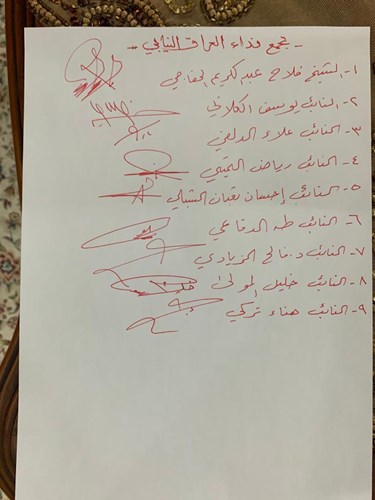 - تجمع فداء العراق النيابي -
١- الشيخ فلاح عبد الكريم الخفاجي
٢- النائب يوسف الكلابي
٣- النائب علاء الدلفي
٤- النائب رياض التميمي
٥- النائب إحسان نعمان الشبلي
٦- النائب طه الدفاعي
٧- النائب د. فالح الزيادي
٨- النائب خليل المولى
٩- النائب هناء تركي